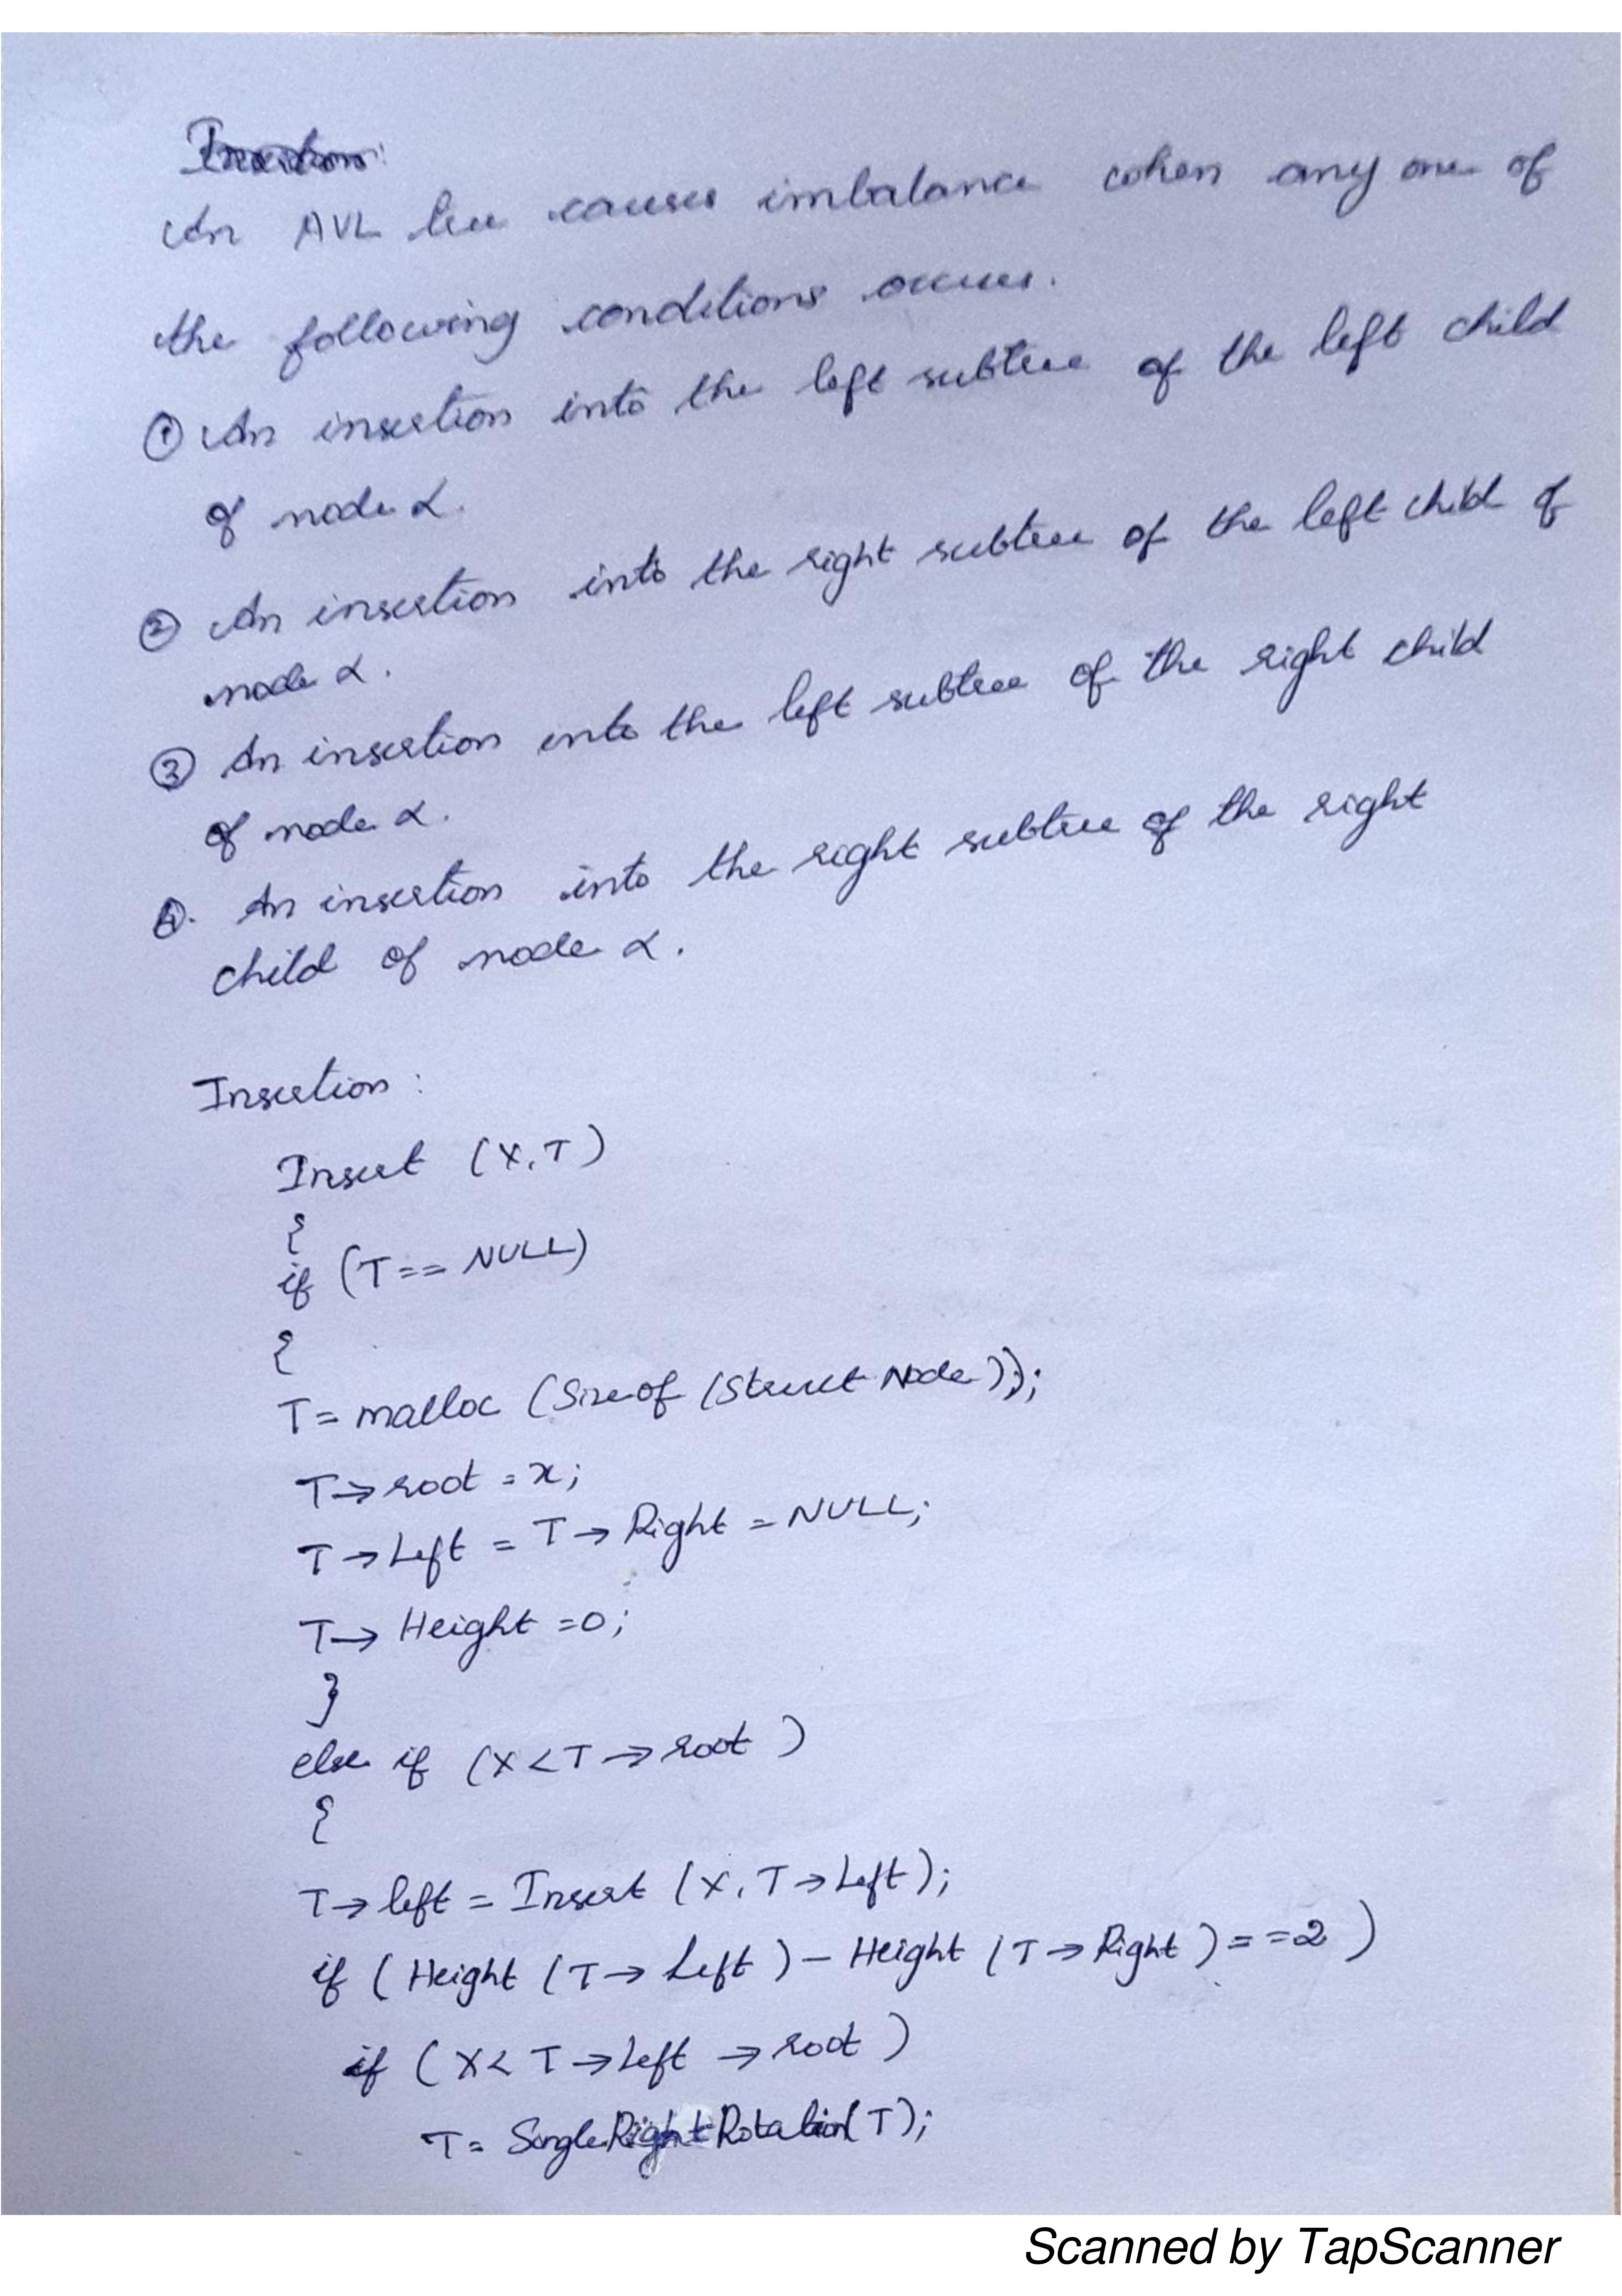 An AVL tree causes imbalance when any one of
the following conditions occurs.
① An insertion into the left subtree of the left child
of node α.
② An insertion into the right subtree of the left child of
node α.
③ An insertion into the left subtree of the right child
of node α.
④. An insertion into the right subtree of the right
child of node α.
Insertion :
Insert (X,T)
{
if (T == NULL)
{
T = malloc (Sizeof (Struct Node));
T → root = x;
T → Left = T → Right = NULL;
T → Height = 0;
}
else if (X < T → root )
{
T → left = Insert (X, T → Left);
if ( Height ( T → Left ) – Height ( T → Right ) = = 2 )
if ( X < T → Left → root )
T = Single Right Rotation( T );
Scanned by TapScanner